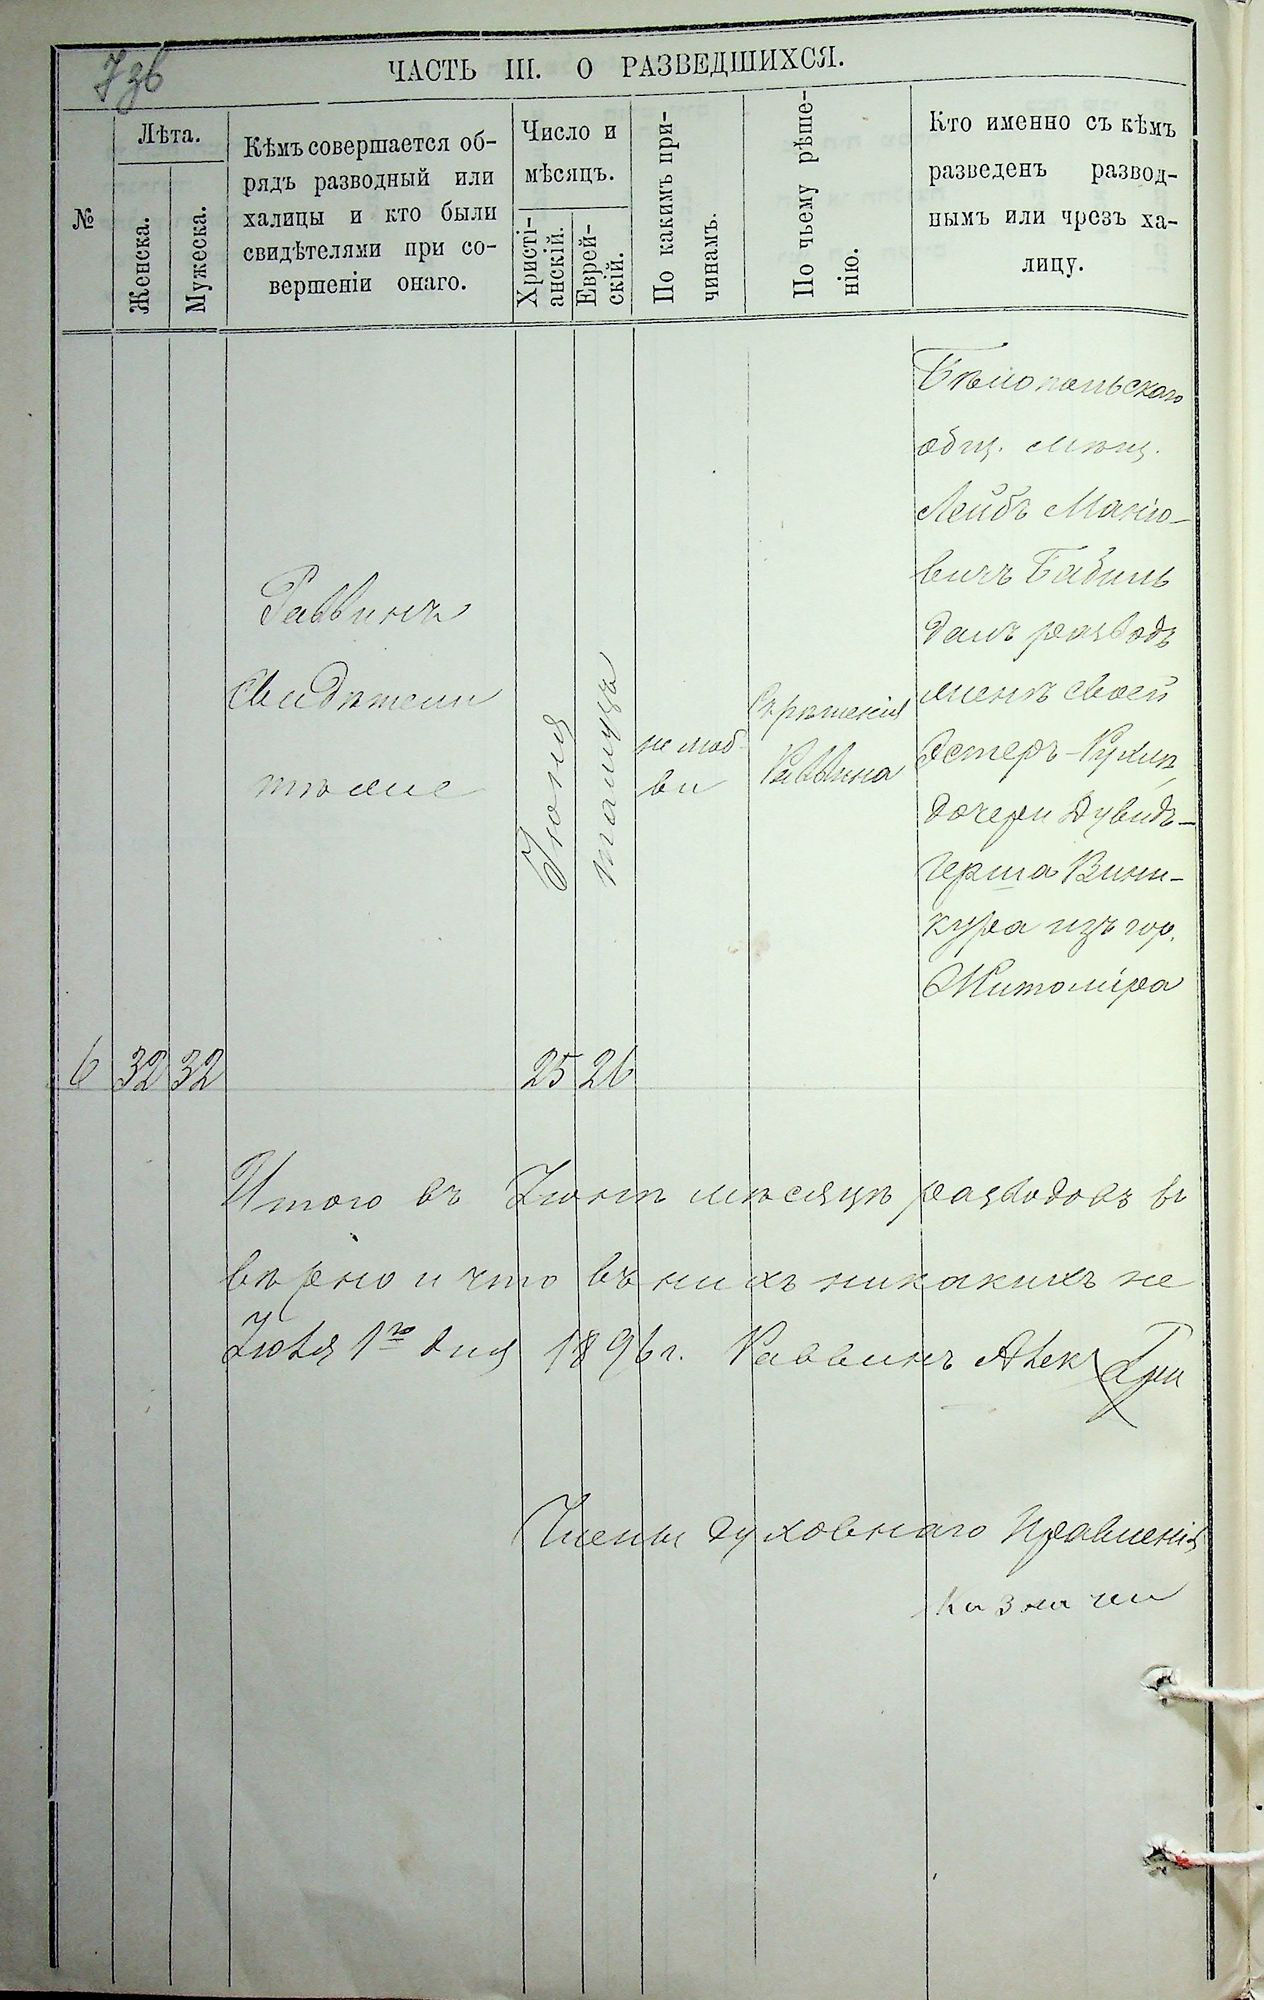 7зв
ЧАСТЬ III. О РАЗВЕДШИХСЯ.
№
Лѣта.
Женска.
Мужеска.
Кѣмъ совершается об-
рядъ разводный или
халицы и кто были
свидѣтелями при со-
вершеніи онаго.
Число и
мѣсяцъ.
Христі-
анскій.
Еврей-
скій.
По какимъ при-
чинамъ.
По чьему рѣше-
нію.
Кто именно съ кѣмъ
разведенъ развод-
нымъ или чрезъ ха-
лицу.
6
32
32
Раввинъ
Свидѣтели
тѣже
Іюня
25
тамузъ
26
не люб-
ви
Съ рѣшенія
Раввина
Бѣлопольскаго
общ. мѣщ.
Лейбъ Маніо-
вичъ Бабинъ
далъ разводъ
женѣ своей
Эстеръ-Рухлѣ,
дочери Дувидъ-
Герша Вини-
кура изъ гор.
Житоміра
Итого въ Іюнѣ мѣсяцѣ разводовъ въ
вѣрно и что въ нихъ никакихъ не
Іюля 1го дня 1896 г. Раввинъ
Члены духовнаго Правленія
Казначеи